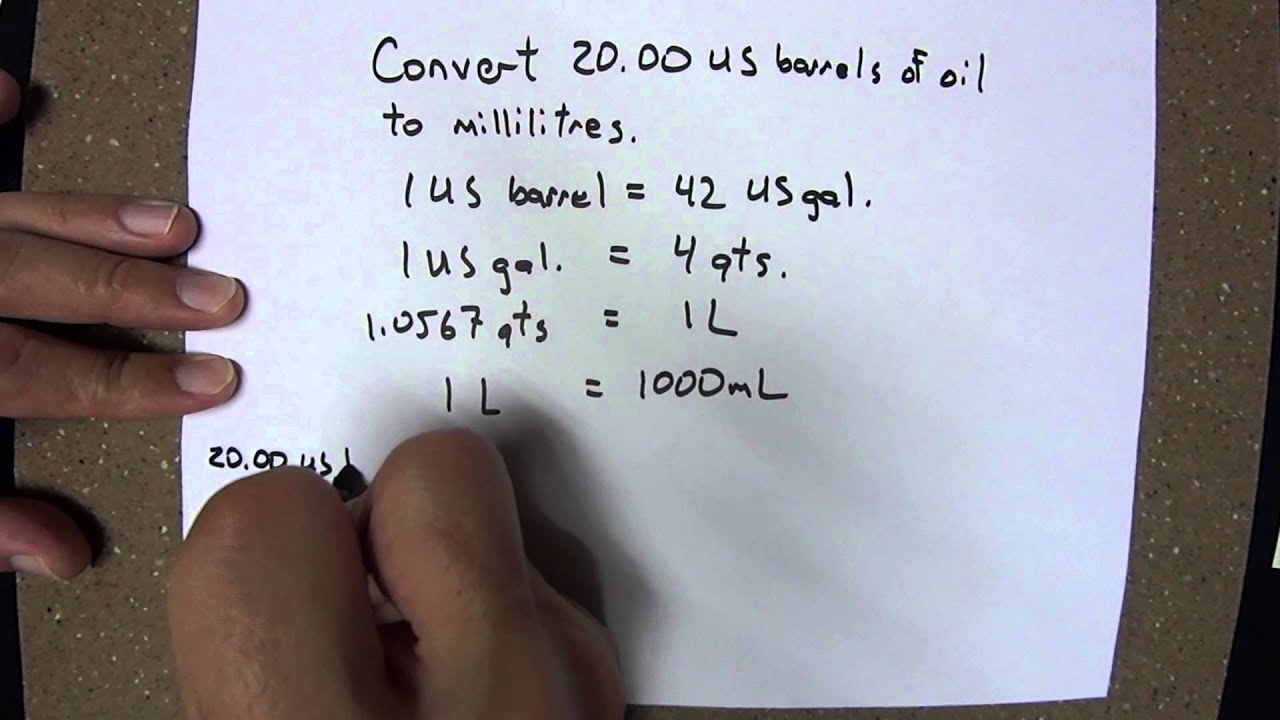 Convert 20.00 US barrels of oil
to millilitres.
1 US barrel = 42 US gal.
1 US gal. = 4 qts.
1.0567 qts = 1 L
1 L = 1000mL
20.00 US